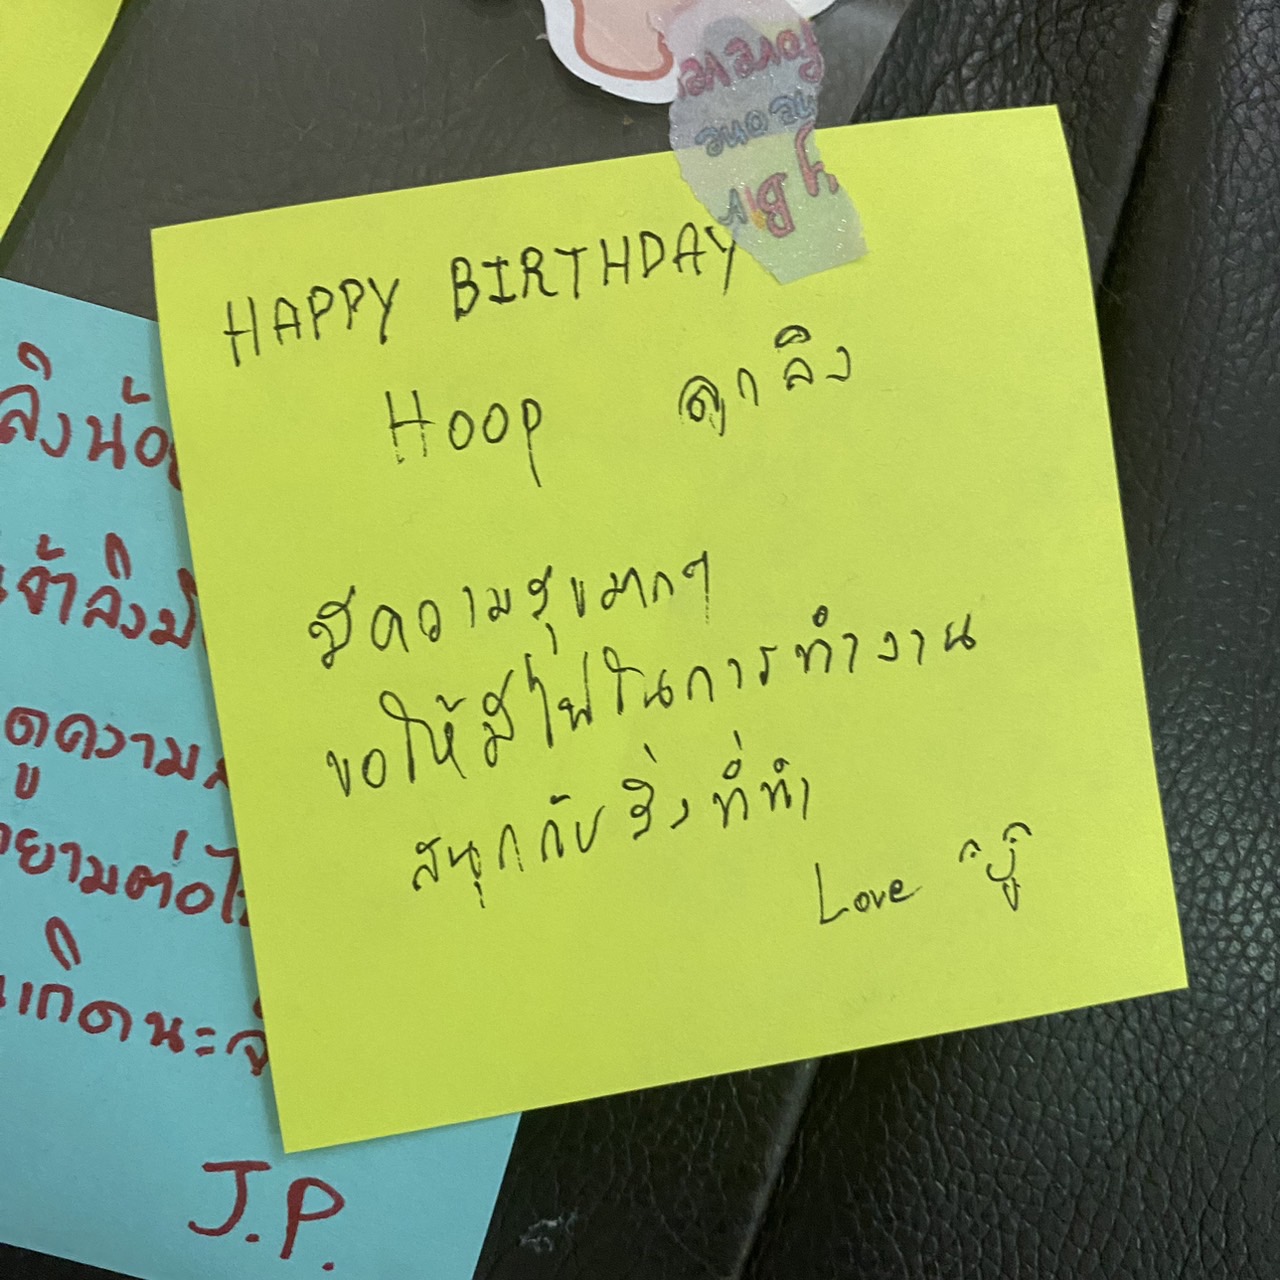 HAPPY BIRTHDAY
Hoop ลูกลิง
มีความสุขมากๆ
ขอให้มีไฟในการทำงาน
สนุกกับสิ่งที่ทำ
Love
ลิงน้อย
เจ้าลิงมี
ดูความส
ยามต่อไ
เกิดนะจ้
J.P.